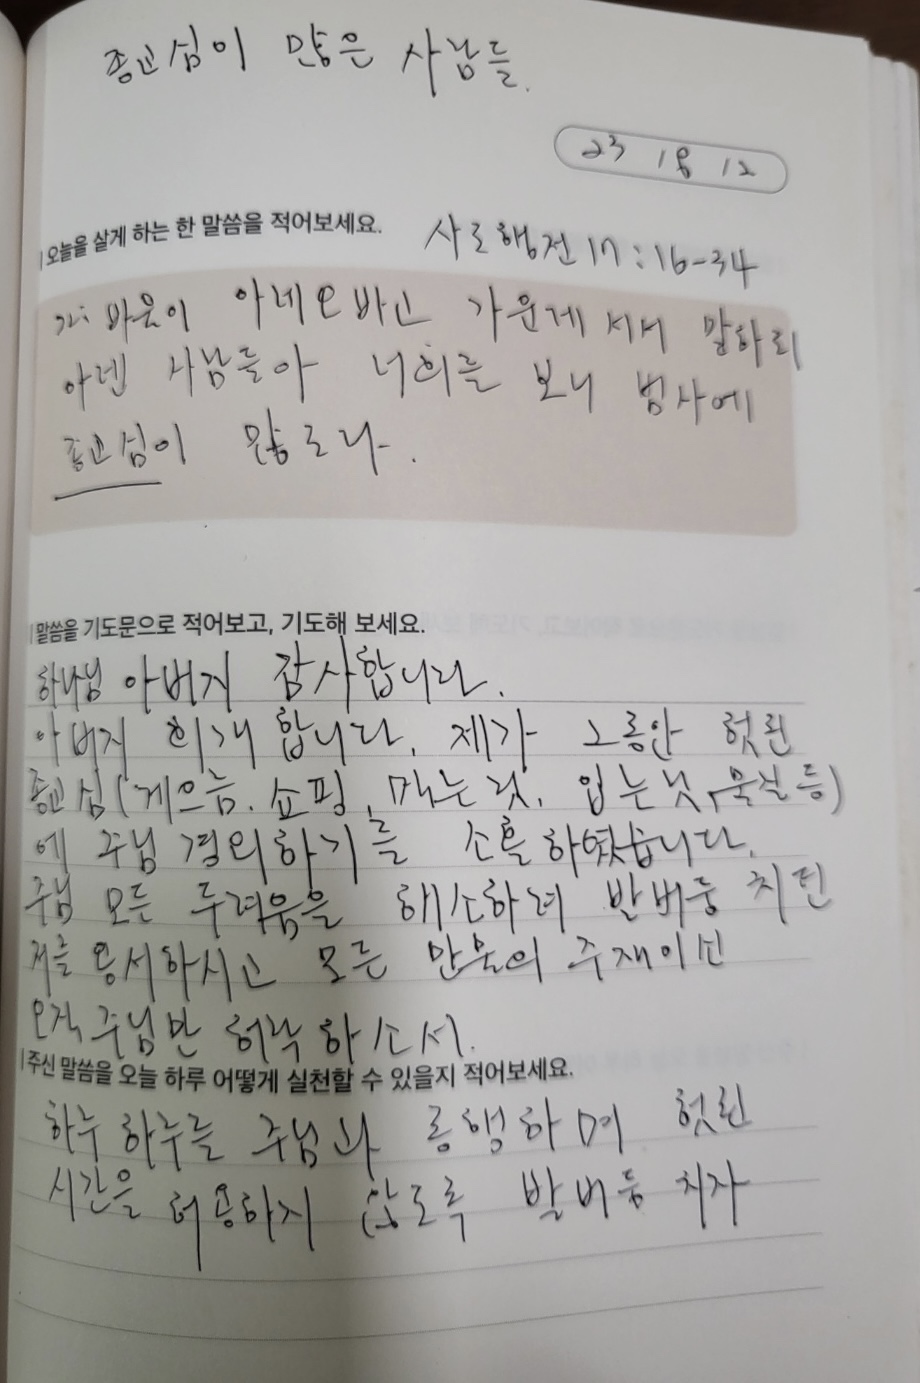 종교심이 많은 사람들.
23 18 12
오늘을 살게 하는 한 말씀을 적어보세요.
사도행전 17:16-34
22 바울이 아레오바고 가운데 서서 말하되
아덴 사람들아 너희를 보니 범사에
종교심이 많도다.
말씀을 기도문으로 적어보고, 기도해 보세요.
하나님 아버지 감사합니다.
아버지 회개합니다. 제가 그동안 헛된
종교심(게으름, 쇼핑, 먹는것, 입는것, 물질 등)
에 주님 경외하기를 소홀하였습니다.
주님 모든 두려움을 해소하려 발버둥 치던
저를 용서하시고 모든 만물의 주재이신
오직 주님만 허락하소서.
주신 말씀을 오늘 하루 어떻게 실천할 수 있을지 적어보세요.
하루 하루를 주님과 동행하며 헛된
시간을 허용하지 않도록 발버둥 치자